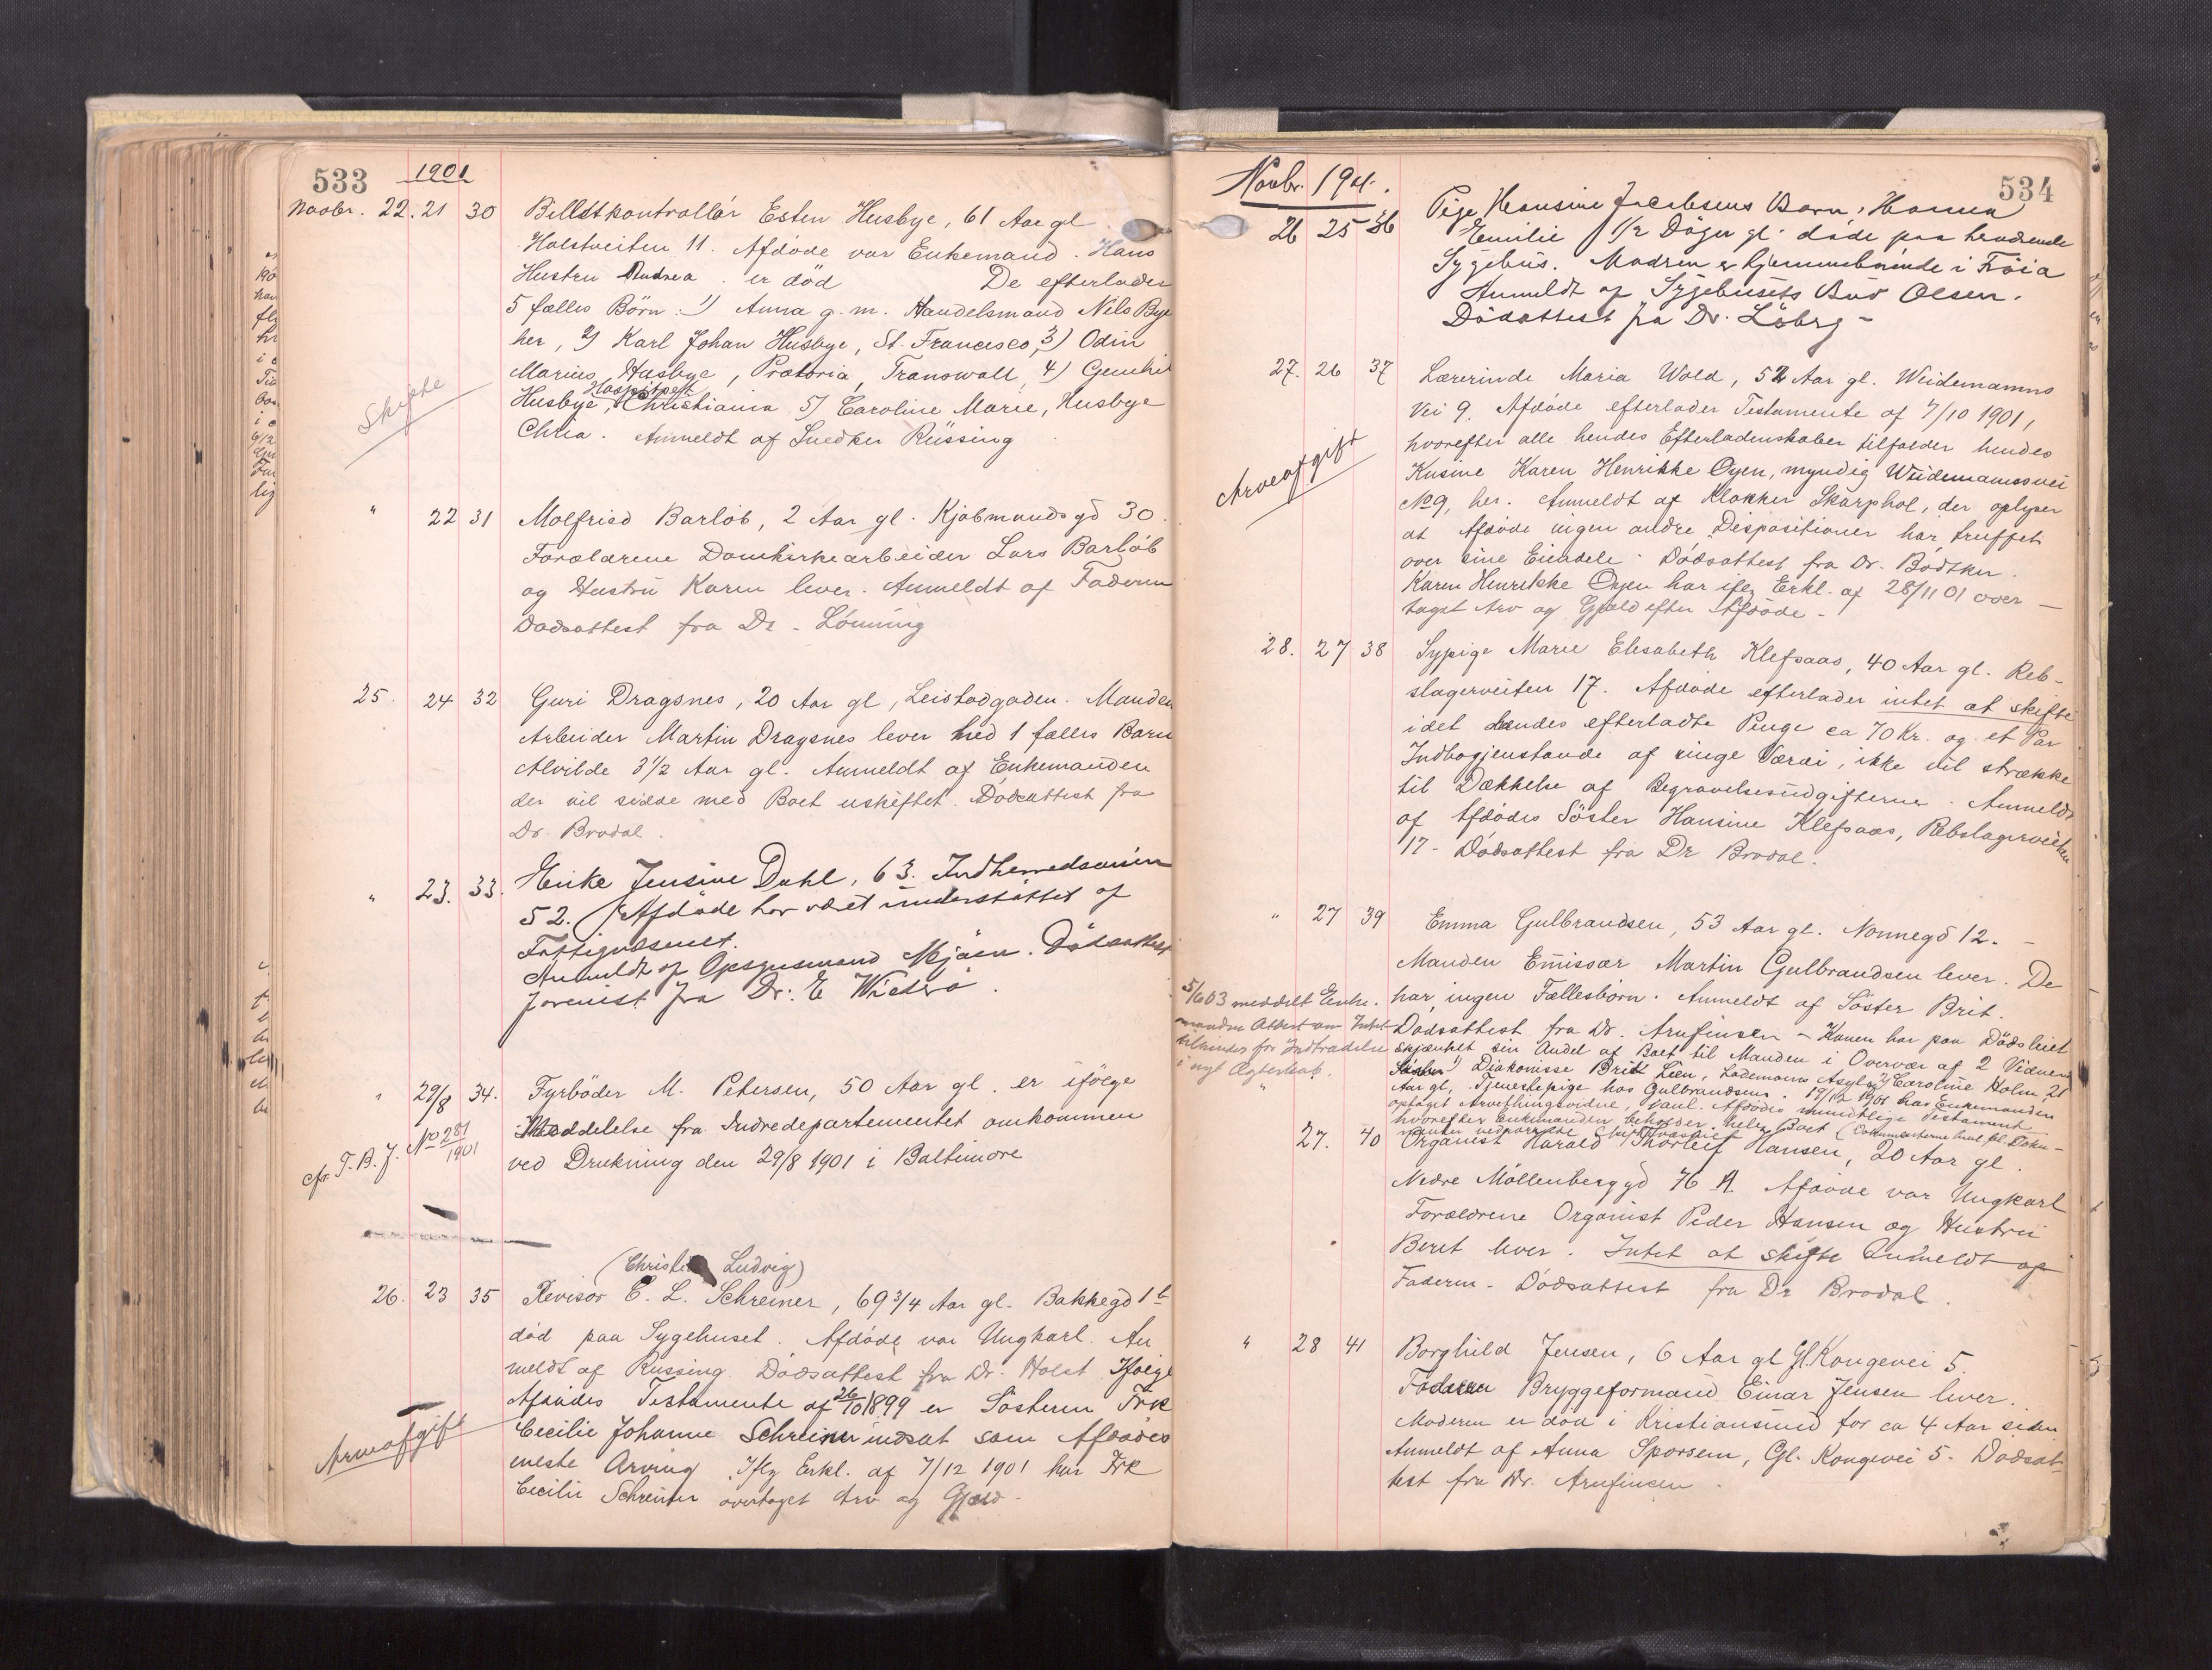 533
1901
Novbr. 22. 21 30 Billetkontrollør Esten Husbye, 61 Aar gl
Holstveiten 11. Afdøde var Enkemand. Hans
Hustru Andrea er død De efterlader
5 fælles Børn: 1) Anna g. m. Handelsmand Nils Bye
her, 2) Karl Johan Husbye, St. Francisco, 3) Odin
Marius Husbye, Prætoria, Transwall, 4)
Husbye, Christiania 5) Caroline Marie, Husbye
Chria. Anmeldt af Snedker Rüssing
Skifte
" 22 31 Molfried Barløb, 2 Aar gl. Kjøbmandsgd 30.
Forældrene Domkirkearbeider Lars Barløb
og Hustru Karen lever. Anmeldt af Faderen
Dødsattest fra Dr. Lønning
25. 24 32 Guri Dragsnes, 20 Aar gl, Leistadgaden. Manden
Arbeider Martin Dragsnes lever med 1 fælles Barn
Alvilde 3 1/2 Aar gl. Anmeldt af Enkemanden
der vil sidde med Boet uskiftet. Dødsattest fra
Dr. Brodal.
" 23. 33. Enke Jensine Dahl, 63. Indherredsveien
52. Afdøde har været understøttet af
Fattigvæsenet.
Anmeldt af Opsynsmand Mjøen. Dødsattest
forevist fra Dr. E
" 29/8 34. Fyrbøder M. Petersen, 50 Aar gl. er ifølge
Meddelelse fra Indredepartementet omkommen
ved Drukning den 29/8 1901 i Baltimore
cfr. T. B. J. No 281/1901
(Christian Ludvig)
26. 23 35 Revisor C. L. Schreiner, 69 3/4 Aar gl. Bakkegd 1 b
død paa Sygehuset. Afdøde var Ungkarl. An
meldt af Rüssing. Dødsattest fra Dr. Holst. Ifølge
Afdødes Testamente af 26/10 1899 er Søsteren Frk
Cecilie Johanne Schreiner indsat som Afdødes
eneste Arving. Iflg Erkl. af 7/12 1901 har Frk
Cecilie Schreiner overtaget Arv og Gjæld.
Arveafgift
534
Novbr. 1901.
26 25 36 Pige Hansine Jacobsens Barn, Hanna
Emilie 1 1/2 Døgn gl. døde paa herværende
Sygehus. Modren er hjemmehørende i Frøia
Anmeldt af Sygehusets Bud Olsen.
Dødsattest fra Dr. Löberg -
27. 26 37 Lærerinde Maria Wold, 52 Aar gl. Weidemanns
Vei 9. Afdøde efterlader Testamente af 7/10 1901,
hvorefter alle hendes Efterladenskaber tilfalder hendes
Kusine Karen Henrikke Øyen, myndig Weidemannsvei
No 9, her. Anmeldt af Klokker Skarphol, der oplyser
at Afdøde ingen andre Dispositioner har truffet
over sine Eiendele. Dødsattest fra Dr. Bødtker.
Karen Henrikke Øyen har iflg Erkl. af 28/11 01 over-
taget Arv og Gjæld efter Afdøde -
Arveafgift
28. 27 38 Sypige Marie Elisabeth Klefsaas, 40 Aar gl. Reb-
slagerveiten 17. Afdøde efterlader intet at skifte
idet hendes efterladte Penge ca 70 Kr. og et Par
Indbogjenstande af ringe Værdi, ikke vil strække
til Dækkelse af Begravelsesudgifterne. Anmeldt
af Afdødes Søster Hansine Klefsaas, Rebslagerveiten
17 - Dødsattest fra Dr Brodal.
" 27 39 Emma Gulbrandsen, 53 Aar gl. Nonnegd 12. -
Manden Emissær Martin Gulbrandsen lever. De
har ingen Fællesbørn. Anmeldt af Søster Brit.
Dødsattest fra Dr. Arnfinsen - Konen har paa Dødsleiet
skjænket sin Andel af Boet til Manden i Overvær af 2 Vidner
1) Diakonisse Brit Lien, Lademoens Asyl og 2) Caroline Holm, 21
Aar gl, Tjenestepige hos Gulbrandsens. 19/12 1901 har Enkemanden
optaget Afdødes mundtlige Testament
hvorefter Enkemanden beholder hele Boet
5/6 03 meddelt Enke-
manden Attest om Intet
tilhinder for Indtrædelse
i nyt Ægteskab.
27. 40 Organist Harald Thorleif Hansen, 20 Aar gl.
Nedre Møllenberggd 76 A. Afdøde var Ungkarl
Forældrene Organist Peder Hansen og Hustru
Beret lever. Intet at skifte Anmeldt af
Faderen - Dødsattest fra Dr Brodal.
" 28 41 Borghild Jensen, 6 Aar gl Gl. Kongevei 5.
Faderen Bryggeformand Einar Jensen lever.
Moderen er død i Kristiansund for ca 4 Aar siden
Anmeldt af Anna Sporsem, Gl. Kongevei 5. Dødsat-
test fra Dr. Arnfinsen.